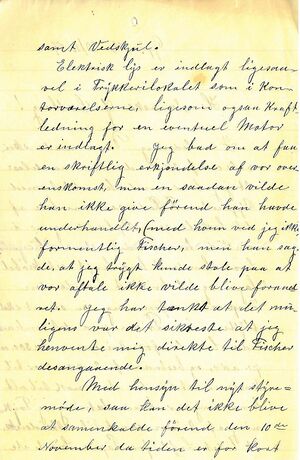 samt Vedskjul.
Elektrisk lys er indlagt ligesaa-
vel i Trykkerilokalet som i Kon-
torværelserne, ligesom ogsaa Kraft-
ledning for en eventuel Motor
er indlagt. Jeg bad om at faa
en skriftlig erkjendelse af vor over-
enskomst, men en saadan vilde
han ikke give förend han havde
underhandlet, (med hvem ved jeg ikke
formentlig Fischer, men han sag-
de, at jeg trygt kunde stole paa at
vor aftale ikke vilde blive forand-
ret. Jeg har tænkt at det mu-
ligens var det sikreste at jeg
henvente mig direkte til Fischer
desangaaende.
Med hensyn til nyt styre-
möde, saa kan det ikke blive
at samenkalde förend den 10de
November da tiden er for kort